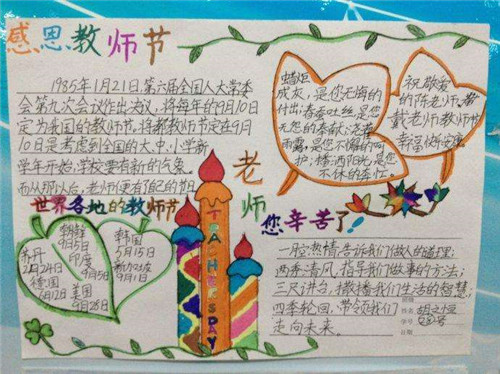 感恩教师节
1985年1月21日,第六届全国人大常委
会第九次会议作出决议,将每年的9月10日
定为我国的教师节,将教师节定在9月
10日是考虑到全国的大、中、小学新
学年开始,学校要有新的气象。
而从那以后,老师便有了自己的节日
蜡炬
成灰,是您无悔的
付出;春蚕吐丝是您
无怨的奉献;
雨露,是您不懈的呵
护;播洒阳光,是您
不休的牵忙
祝敬爱
的陈老师、戴
戴老师教师节
幸福快乐
世界各地的教师节
朝鲜
9月5日
印度
9月5日
苏丹
2月24日
德国
6月12日
美国
9月28日
韩国
5月15日
新加坡
9月1日
TEACHER'S DAY
老师
您辛苦了!
一腔热情,告诉我们做人的道理;
两季清风,指导我们做事的方法;
三尺讲台,播撒我们生活的智慧;
四季轮回,带领我们
走向未来。
班级
姓名 胡之恒
学号 22号
日期